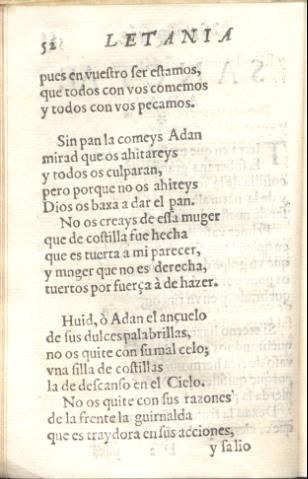 52 LETANIA
pues en vuestro ser estamos,
que todos con vos comemos
y todos con vos pecamos.
Sin pan la comeys Adan
mirad que os ahitareys
y todos os culparan,
pero porque no os ahiteys
Dios os baxa a dar el pan.
No os creays de essa muger
que de costilla fue hecha
que es tuerta a mi parecer,
y mnger que no es derecha,
tuertos por fuerça à de hazer.
Huid, ò Adan el ançuelo
de sus dulces palabrillas,
no os quite con su mal celo;
vna silla de costillas
la de descanso en el Cielo.
No os quite con sus razones
de la frente la guirnalda
que es traydora en sus acciones,
y salio